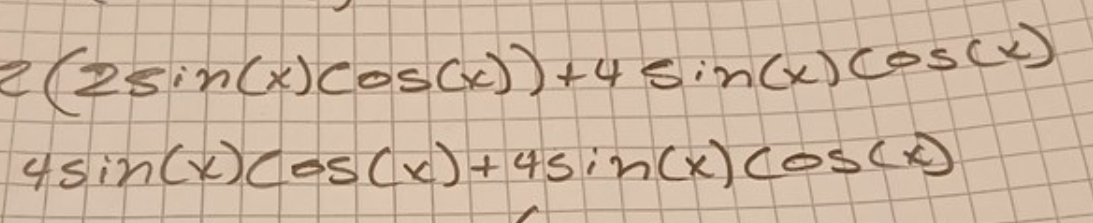 2(2sin(x)cos(x))+4sin(x)cos(x)
4sin(x)cos(x)+4sin(x)cos(x)